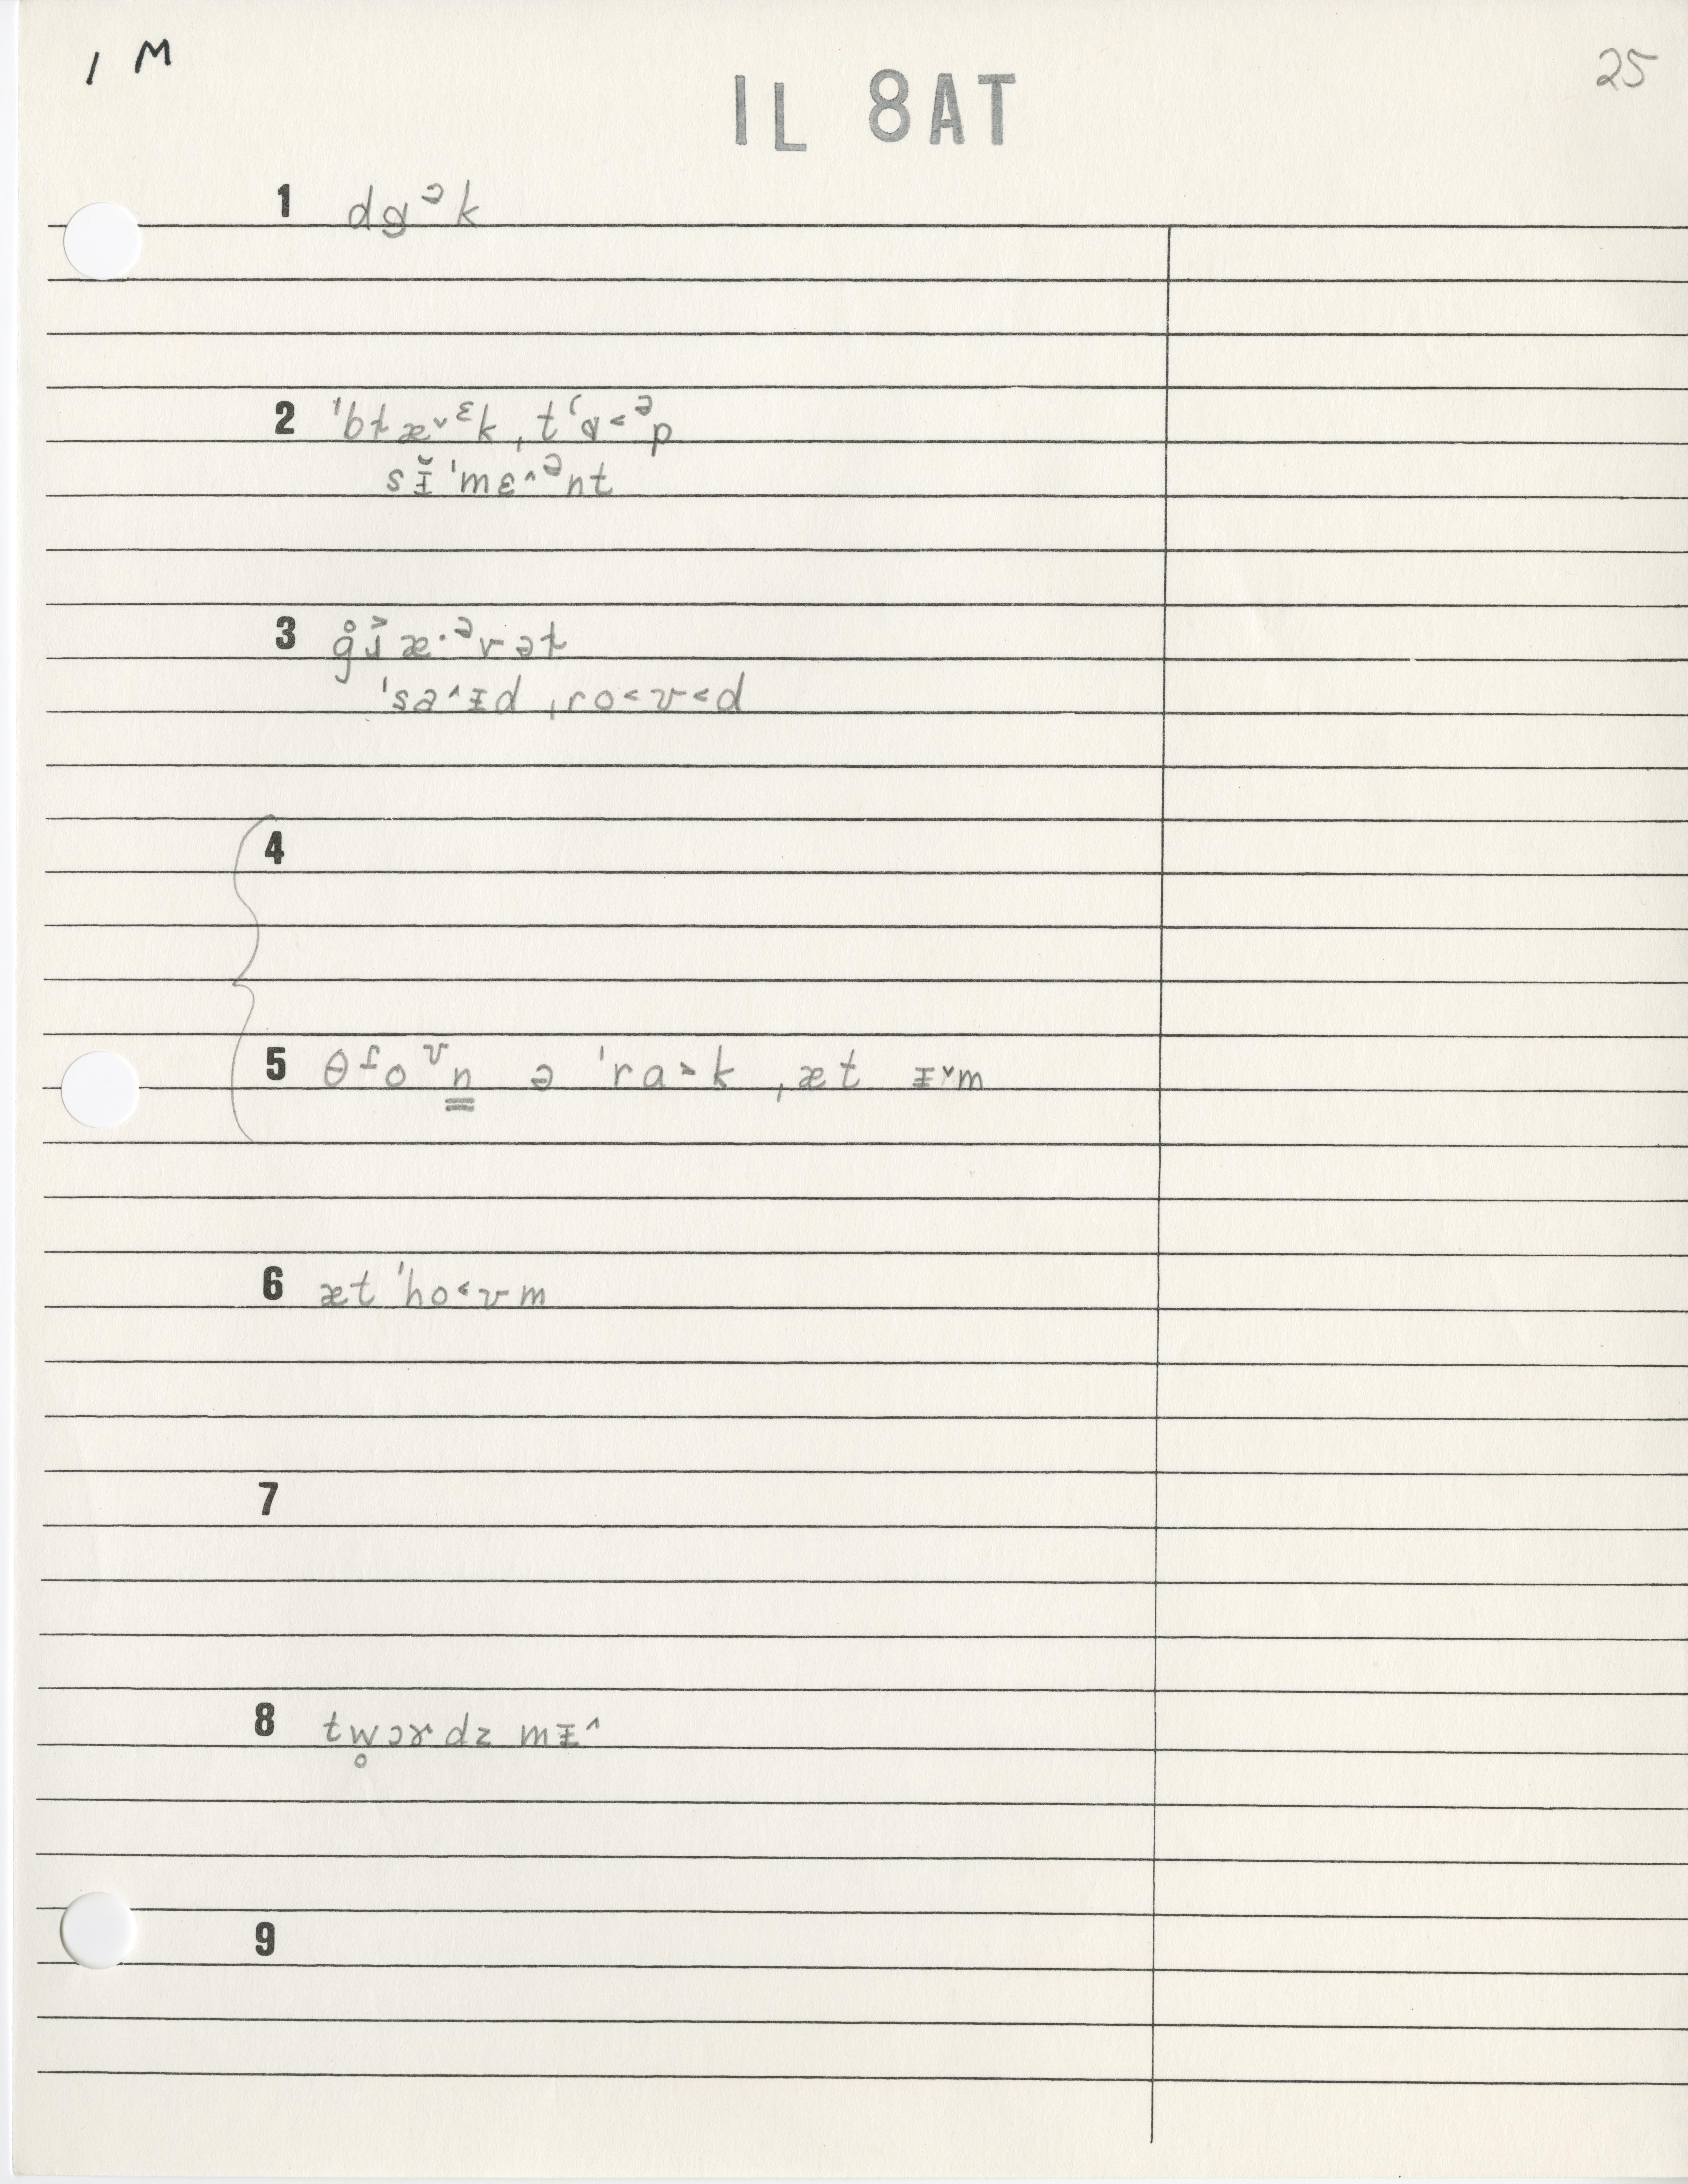 1 M
25
1L 8AT
1 dɑᵊk
2 ˈbɫæ˅ᵋk ˌtʻɑ˂ᵊp
sɪ̵̆ ˈmɛ˄ᵊnt
3 g̊ɹ̌æ·ᵊvəɫ
ˈsa˄ɪ̵d ˌro˂ʊ˂d
4
5 θɾoᶷn̳ ə ˈra˃k ˌæt ɪ̵˅m
6 æt ˈho˂ʊm
7
8 tw̥ɔɚdz mɪ̵˄
9